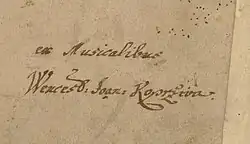 ex Musicalibus
Wencesl. Joan. Koprživa.